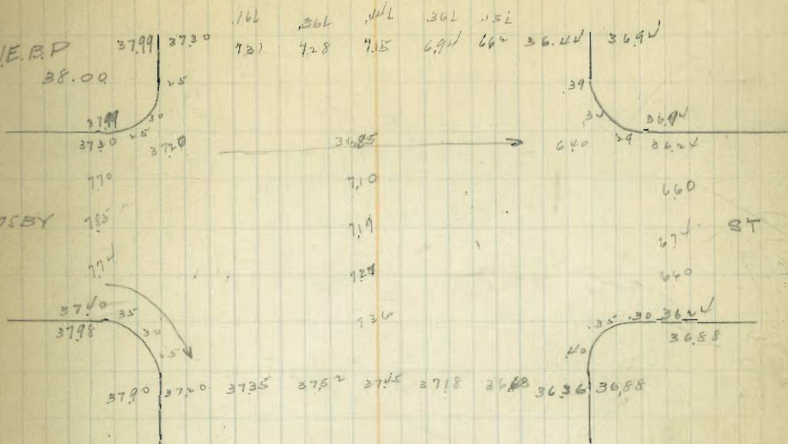 .16L .36L .44L .36L .15L
37.99 37.30 7.31 7.28 7.15 6.94 6.62 36.44 36.94
E.B.P
38.00 .25 .39
37.99 .30 .34 36.94
37.30 .25 37.20 36.85 6.40 .29 36.24
7.70 7.10 6.60
OSBY 7.85 7.19 6.74 ST
7.74 7.27 6.60
37.40 .35 7.36 .35 .30 36.24
37.98 .30 36.88
.25 .40
37.90 37.20 37.35 37.52 37.45 37.18 36.68 36.36 36.88